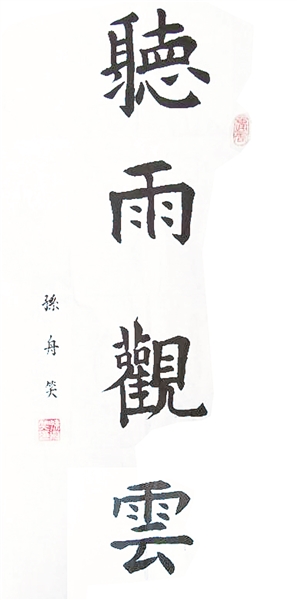 聽雨觀雲
孫舟笑